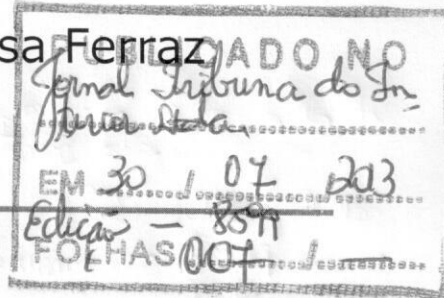 sa Ferraz
PUBLICADO NO
Jornal Tribuna do In
terior Ltda.
EM 30 / 07 / 2013
Edição —
FOLHAS 007 / —